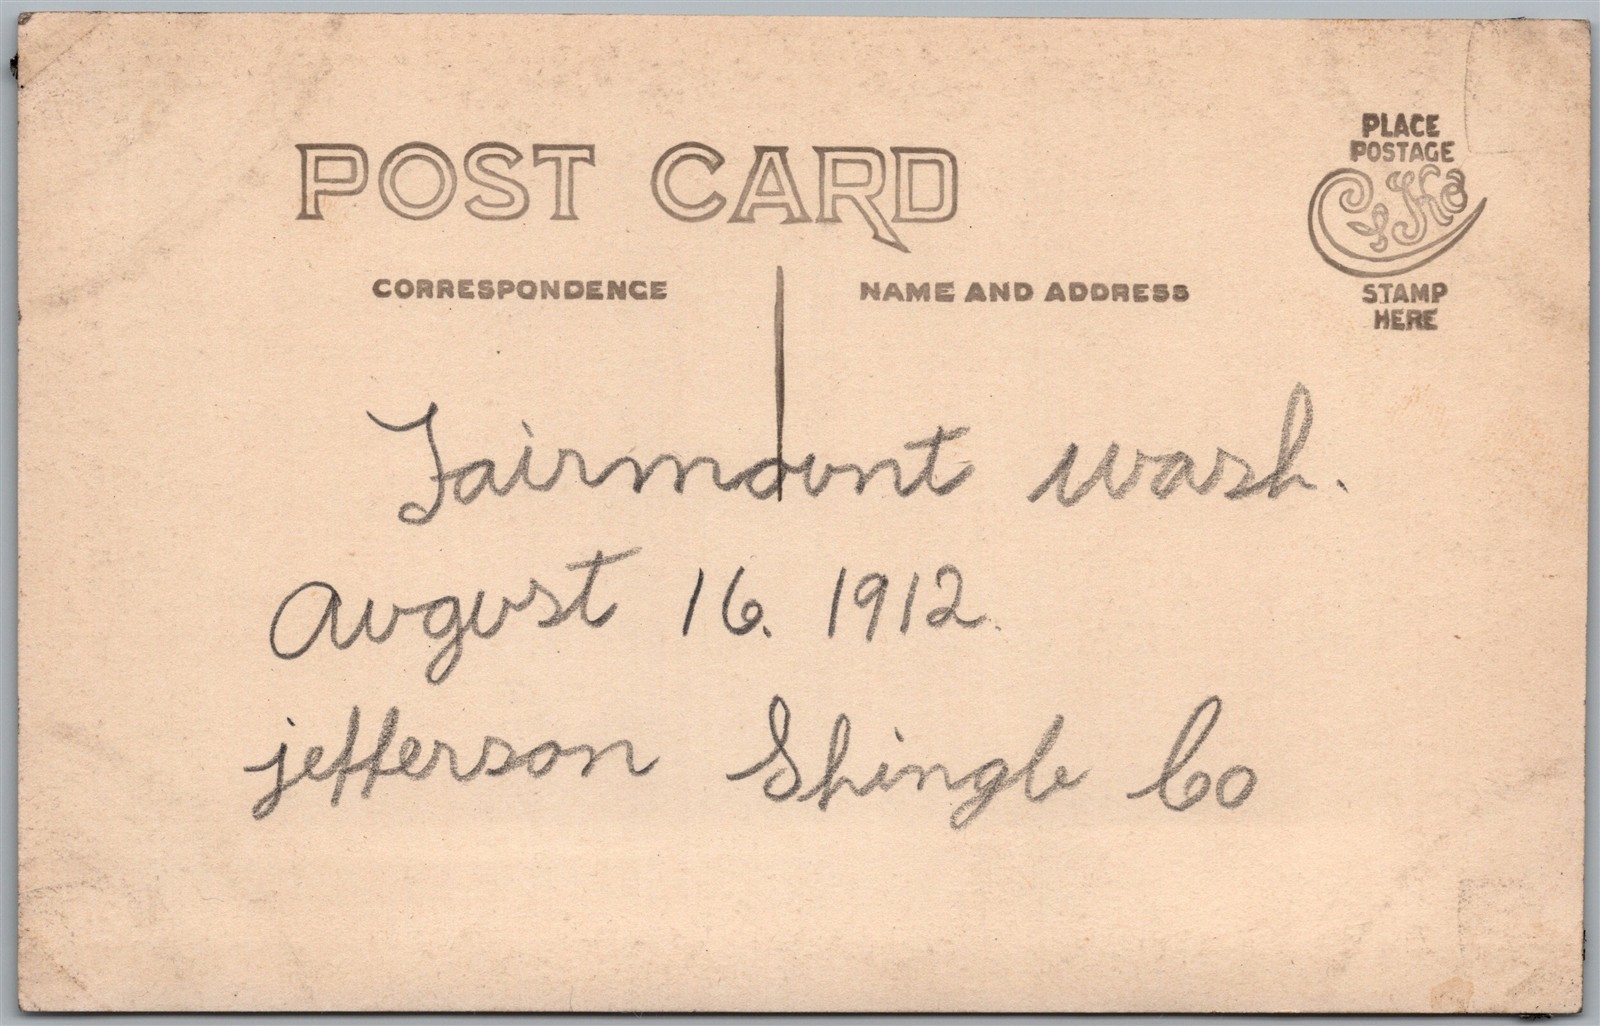 POST CARD
CORRESPONDENCE
NAME AND ADDRESS
PLACE
POSTAGE
CyKo
STAMP
HERE
Fairmount wash.
August 16. 1912.
jefferson Shingle Co